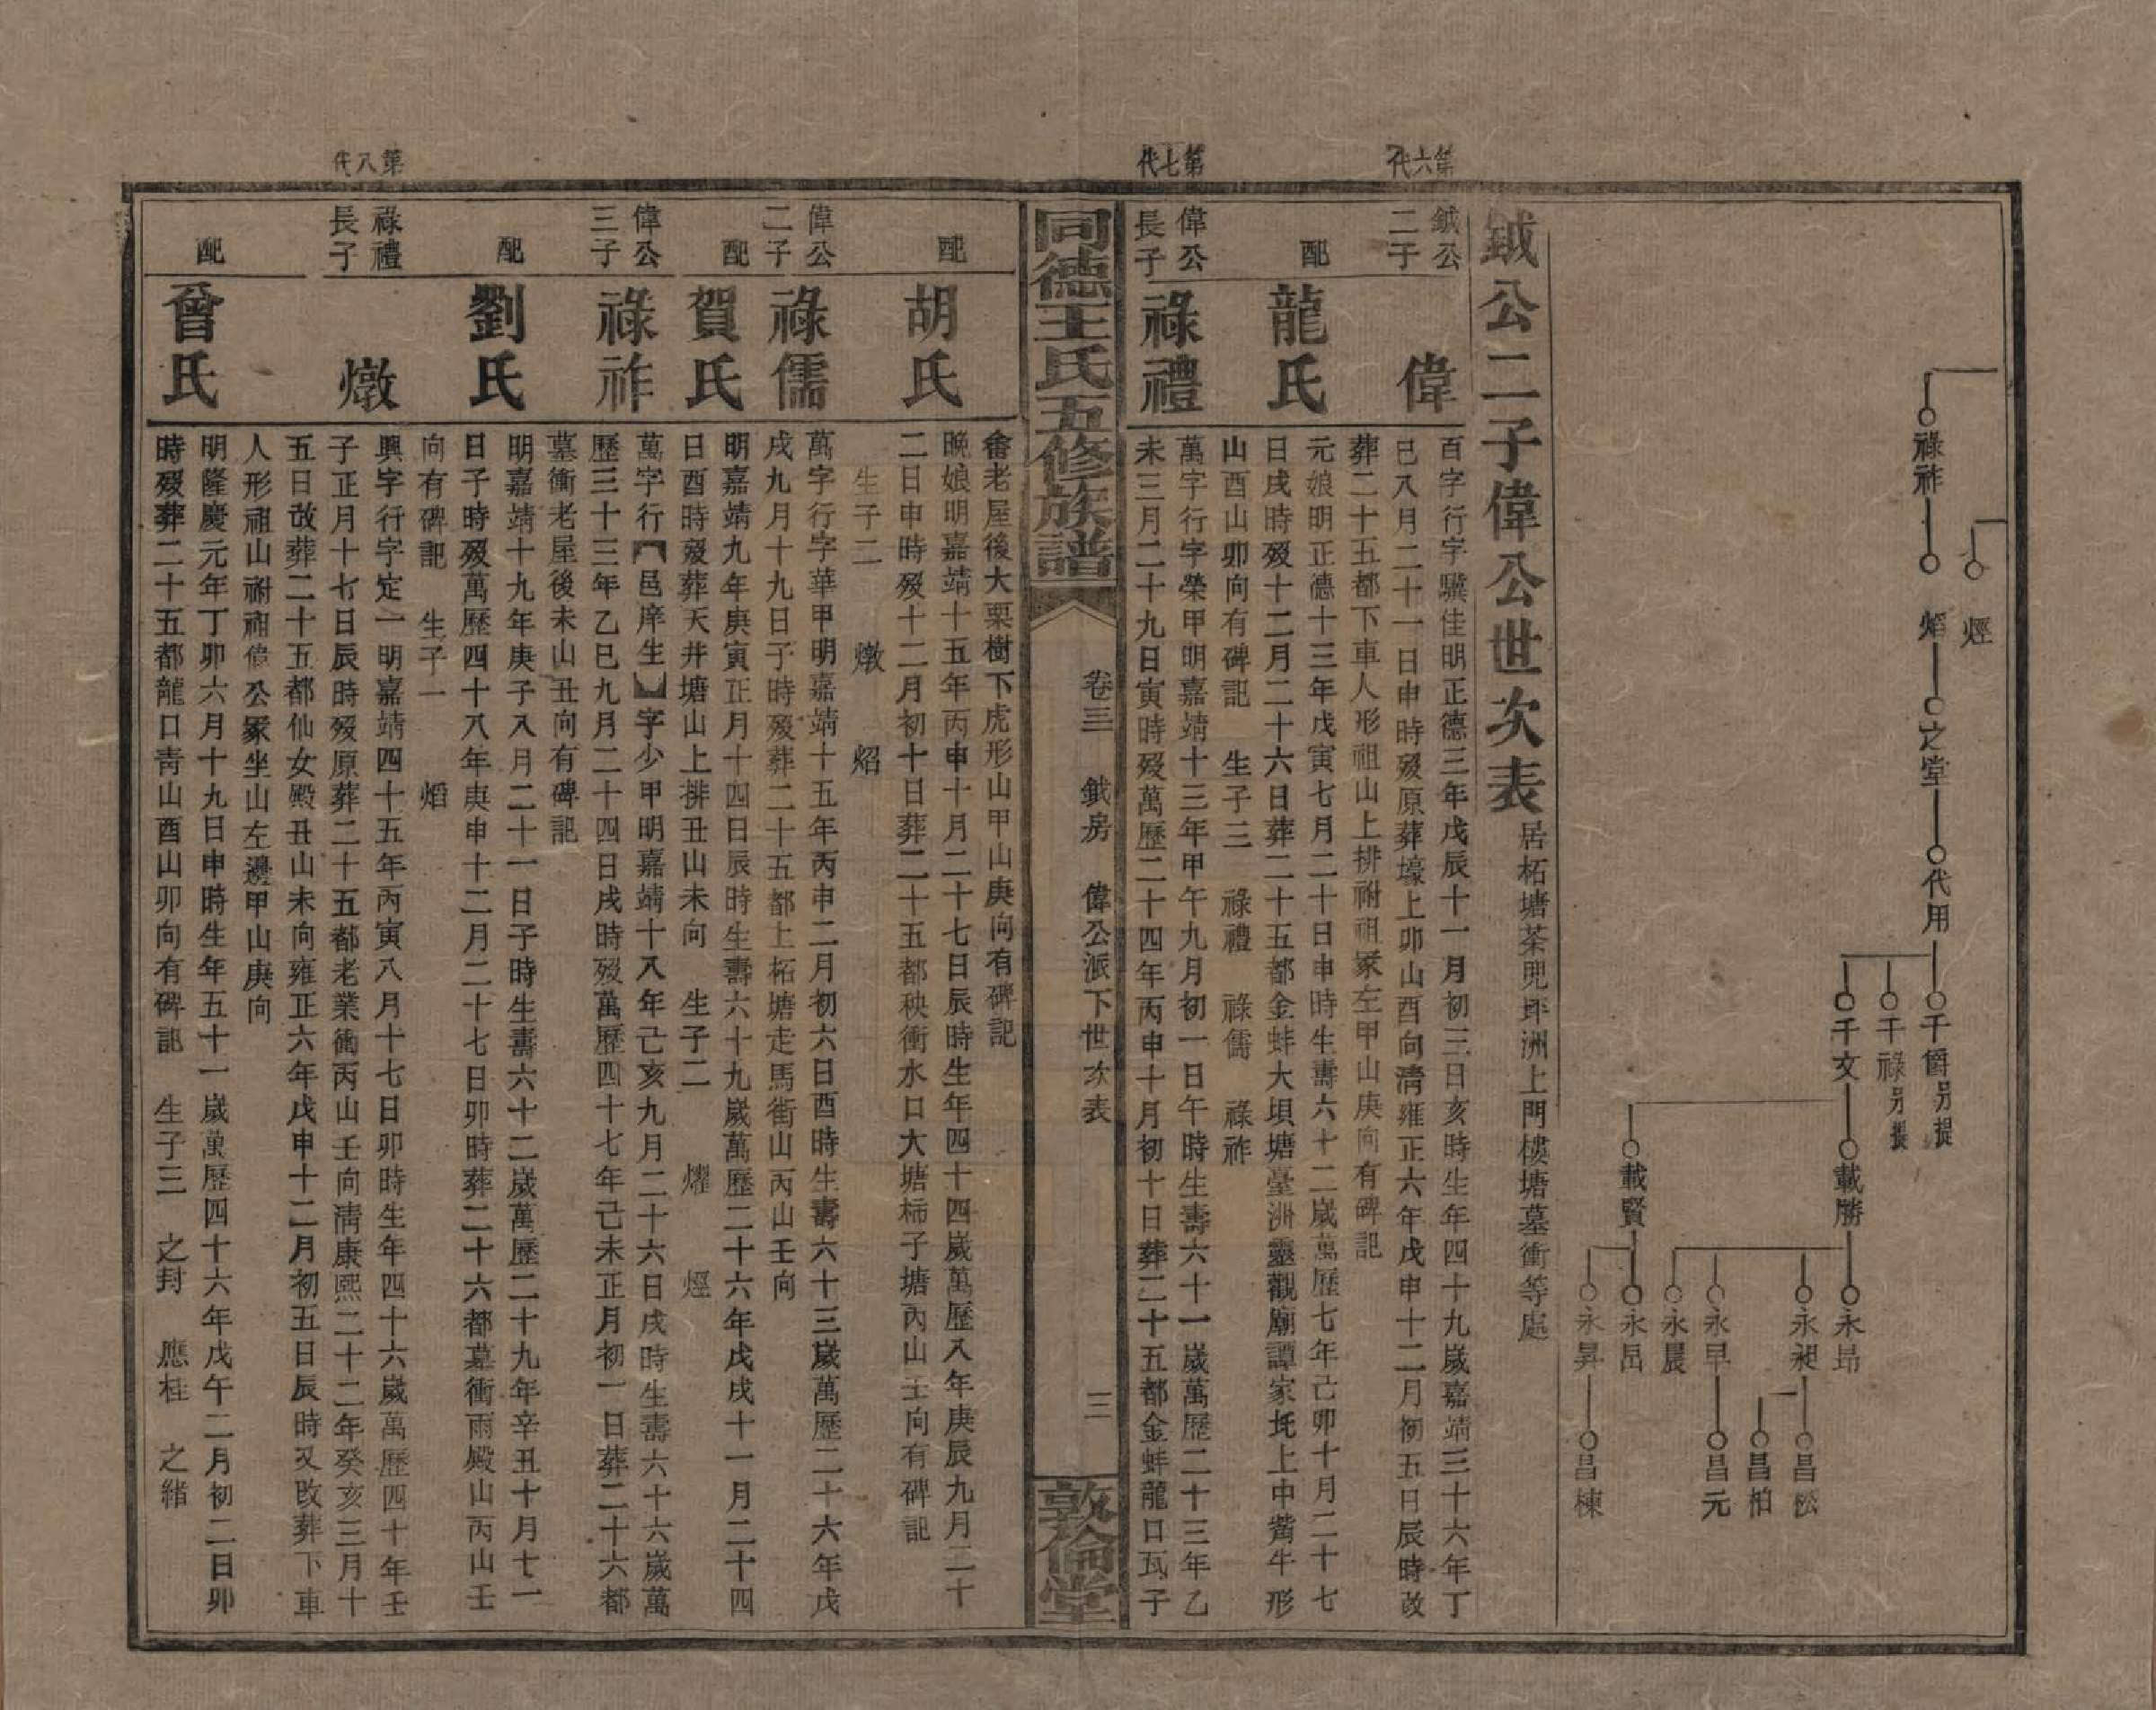 烴
祿祚
熖
之堂
代用
千爵另提
千祿另提
千文
載勝
載賢
永昂
永昶
永早
永晨
永昌
永昇
昌松
昌柏
昌元
昌棟
鉞公二子偉公世次表 居柘塘茶兜坪洲上門樓塘墓衝等處
第六代
鉞公二子
偉
百字行字驥佳明正德三年戊辰十一月初三日亥時生年四十九歲嘉靖三十六年丁
巳八月二十一日申時歿原葬壕上卯山酉向清雍正六年戊申十二月初五日辰時改
葬二十五都下車人形祖山上排祔祖冢左甲山庚向有碑記
配
龍氏
元娘明正德十三年戊寅七月二十日申時生壽六十二歲萬歷七年己卯十月二十七
日戌時歿十二月二十六日葬二十五都金蚌大垻塘臺洲靈觀廟譚家坉上中觜牛形
山酉山卯向有碑記 生子三 祿禮 祿儒 祿祚
第七代
偉公長子
祿禮
萬字行字榮甲明嘉靖十三年甲午九月初一日午時生壽六十一歲萬歷二十三年乙
未三月二十九日寅時歿萬歷二十四年丙申十月初十日葬二十五都金蚌龍口瓦子
同德王氏五修族譜
卷三 鉞房 偉公派下世次表
三
敦倫堂
畲老屋後大栗樹下虎形山甲山庚向有碑記
配
胡氏
晚娘明嘉靖十五年丙申十月二十七日辰時生年四十四歲萬歷八年庚辰九月二十
二日申時歿十二月初十日葬二十五都秧衝水口大塘柿子塘丙山壬向有碑記
生子二 燉 炤
偉公二子
祿儒
萬字行字華甲明嘉靖十五年丙申二月初六日酉時生壽六十三歲萬歷二十六年戊
戌九月十九日子時歿葬二十五都上柘塘走馬衝山丙山壬向
配
賀氏
明嘉靖九年庚寅正月十四日辰時生壽六十九歲萬歷二十六年戊戌十一月二十四
日酉時歿葬天井塘山上排丑山未向 生子二 燿 烴
偉公三子
祿祚
萬字行【邑庠生】字少甲明嘉靖十八年己亥九月二十六日戌時生壽六十六歲萬
歷三十三年乙巳九月二十四日戌時歿萬歷四十七年己未正月初一日葬二十六都
墓衝老屋後未山丑向有碑記
配
劉氏
明嘉靖十九年庚子八月二十一日子時生壽六十二歲萬歷二十九年辛丑十月七一
日子時歿萬歷四十八年庚申十二月二十七日卯時葬二十六都墓衝雨殿山丙山壬
向有碑記 生子一 熖
第八代
祿禮長子
燉
興字行字定一明嘉靖四十五年丙寅八月十七日卯時生年四十六歲萬歷四十年壬
子正月十七日辰時歿原葬二十五都老業衝丙山壬向清康熙二十二年癸亥三月十
五日改葬二十五都仙女殿丑山未向雍正六年戊申十二月初五日辰時又改葬下車
人形祖山祔祖偉公冢坐山左邊甲山庚向
配
曾氏
明隆慶元年丁卯六月十九日申時生年五十一歲萬歷四十六年戊午二月初二日卯
時歿葬二十五都龍口青山酉山卯向有碑記 生子三 之封 應桂 之緒